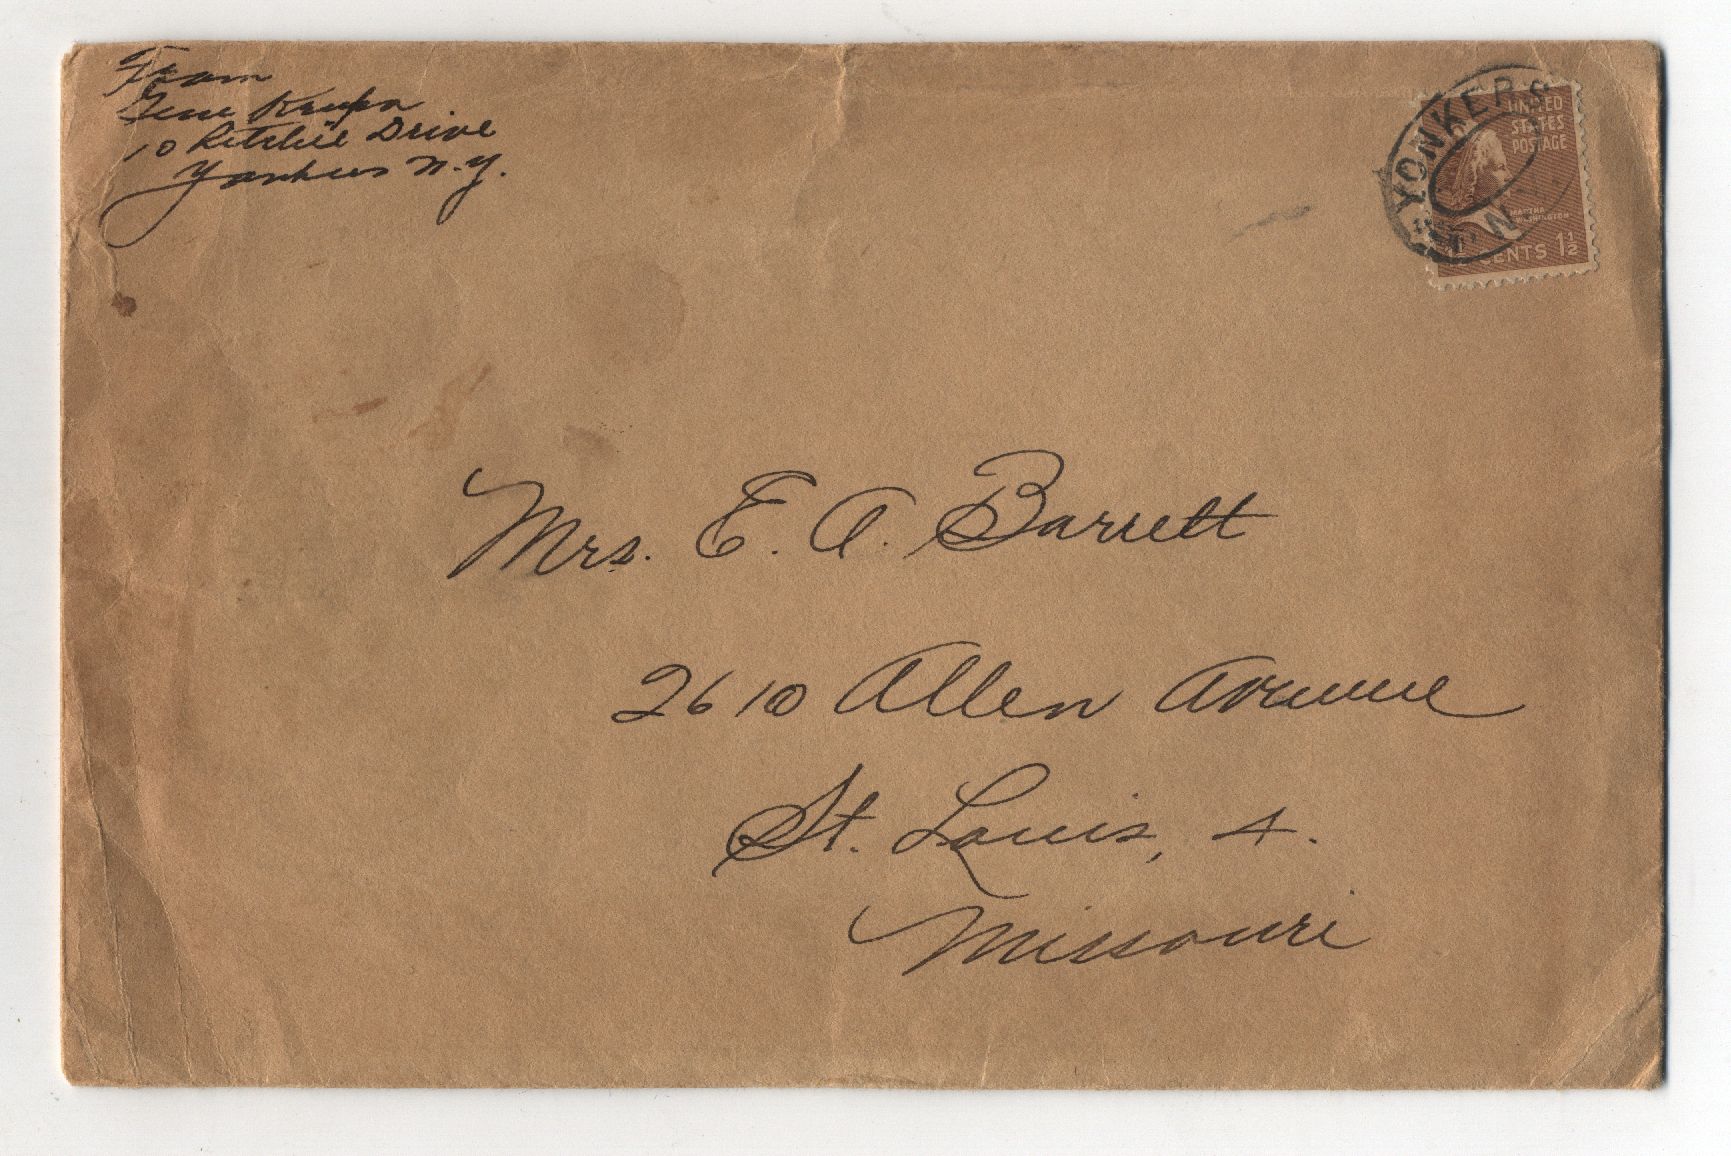 From
Gene Krupa
10 Ritchie Drive
Yonkers N.Y.
YONKERS
N.Y.
UNITED
STATES
POSTAGE
MARTHA
WASHINGTON
CENTS 1½
Mrs. E. A. Barrett
2610 Allen Avenue
St. Louis, 4.
Missouri